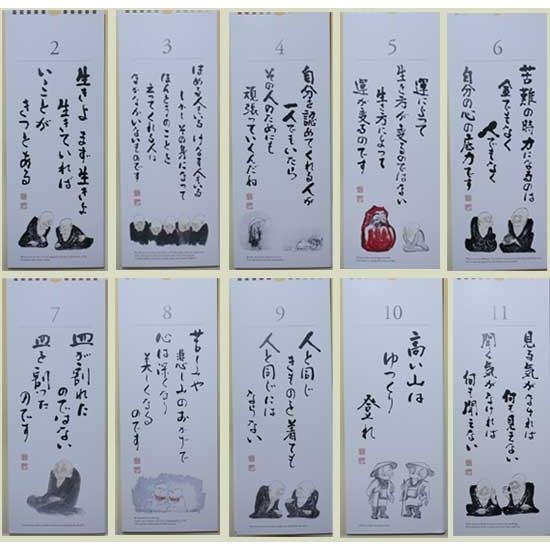 2
生きよ まず生きよ
生きていれば
いいことが
きっとある
3
ほめる人もいる けなす人もいる
しかし その身になって
ほんとうのことを
言ってくれる人は
なかなかいないものです
4
自分を認めてくれる人が
一人でもいたら
その人のためにも
頑張っていくんだね
5
運によって
生き方が変るのではない
生き方によって
運が変るのです
6
苦難の時 力になるのは
金でもなく
人でもなく
自分の心の底力です
7
皿が割れた
のではない
皿を割った
のです
8
苦しみや
悲しみのおかげで
心は深くなり
美しくなる
のです
9
人と同じ
きものを着ても
人と同じには
ならない
10
高い山は
ゆっくり
登れ
11
見る気がなければ
何も見えない
聞く気がなければ
何も聞えない